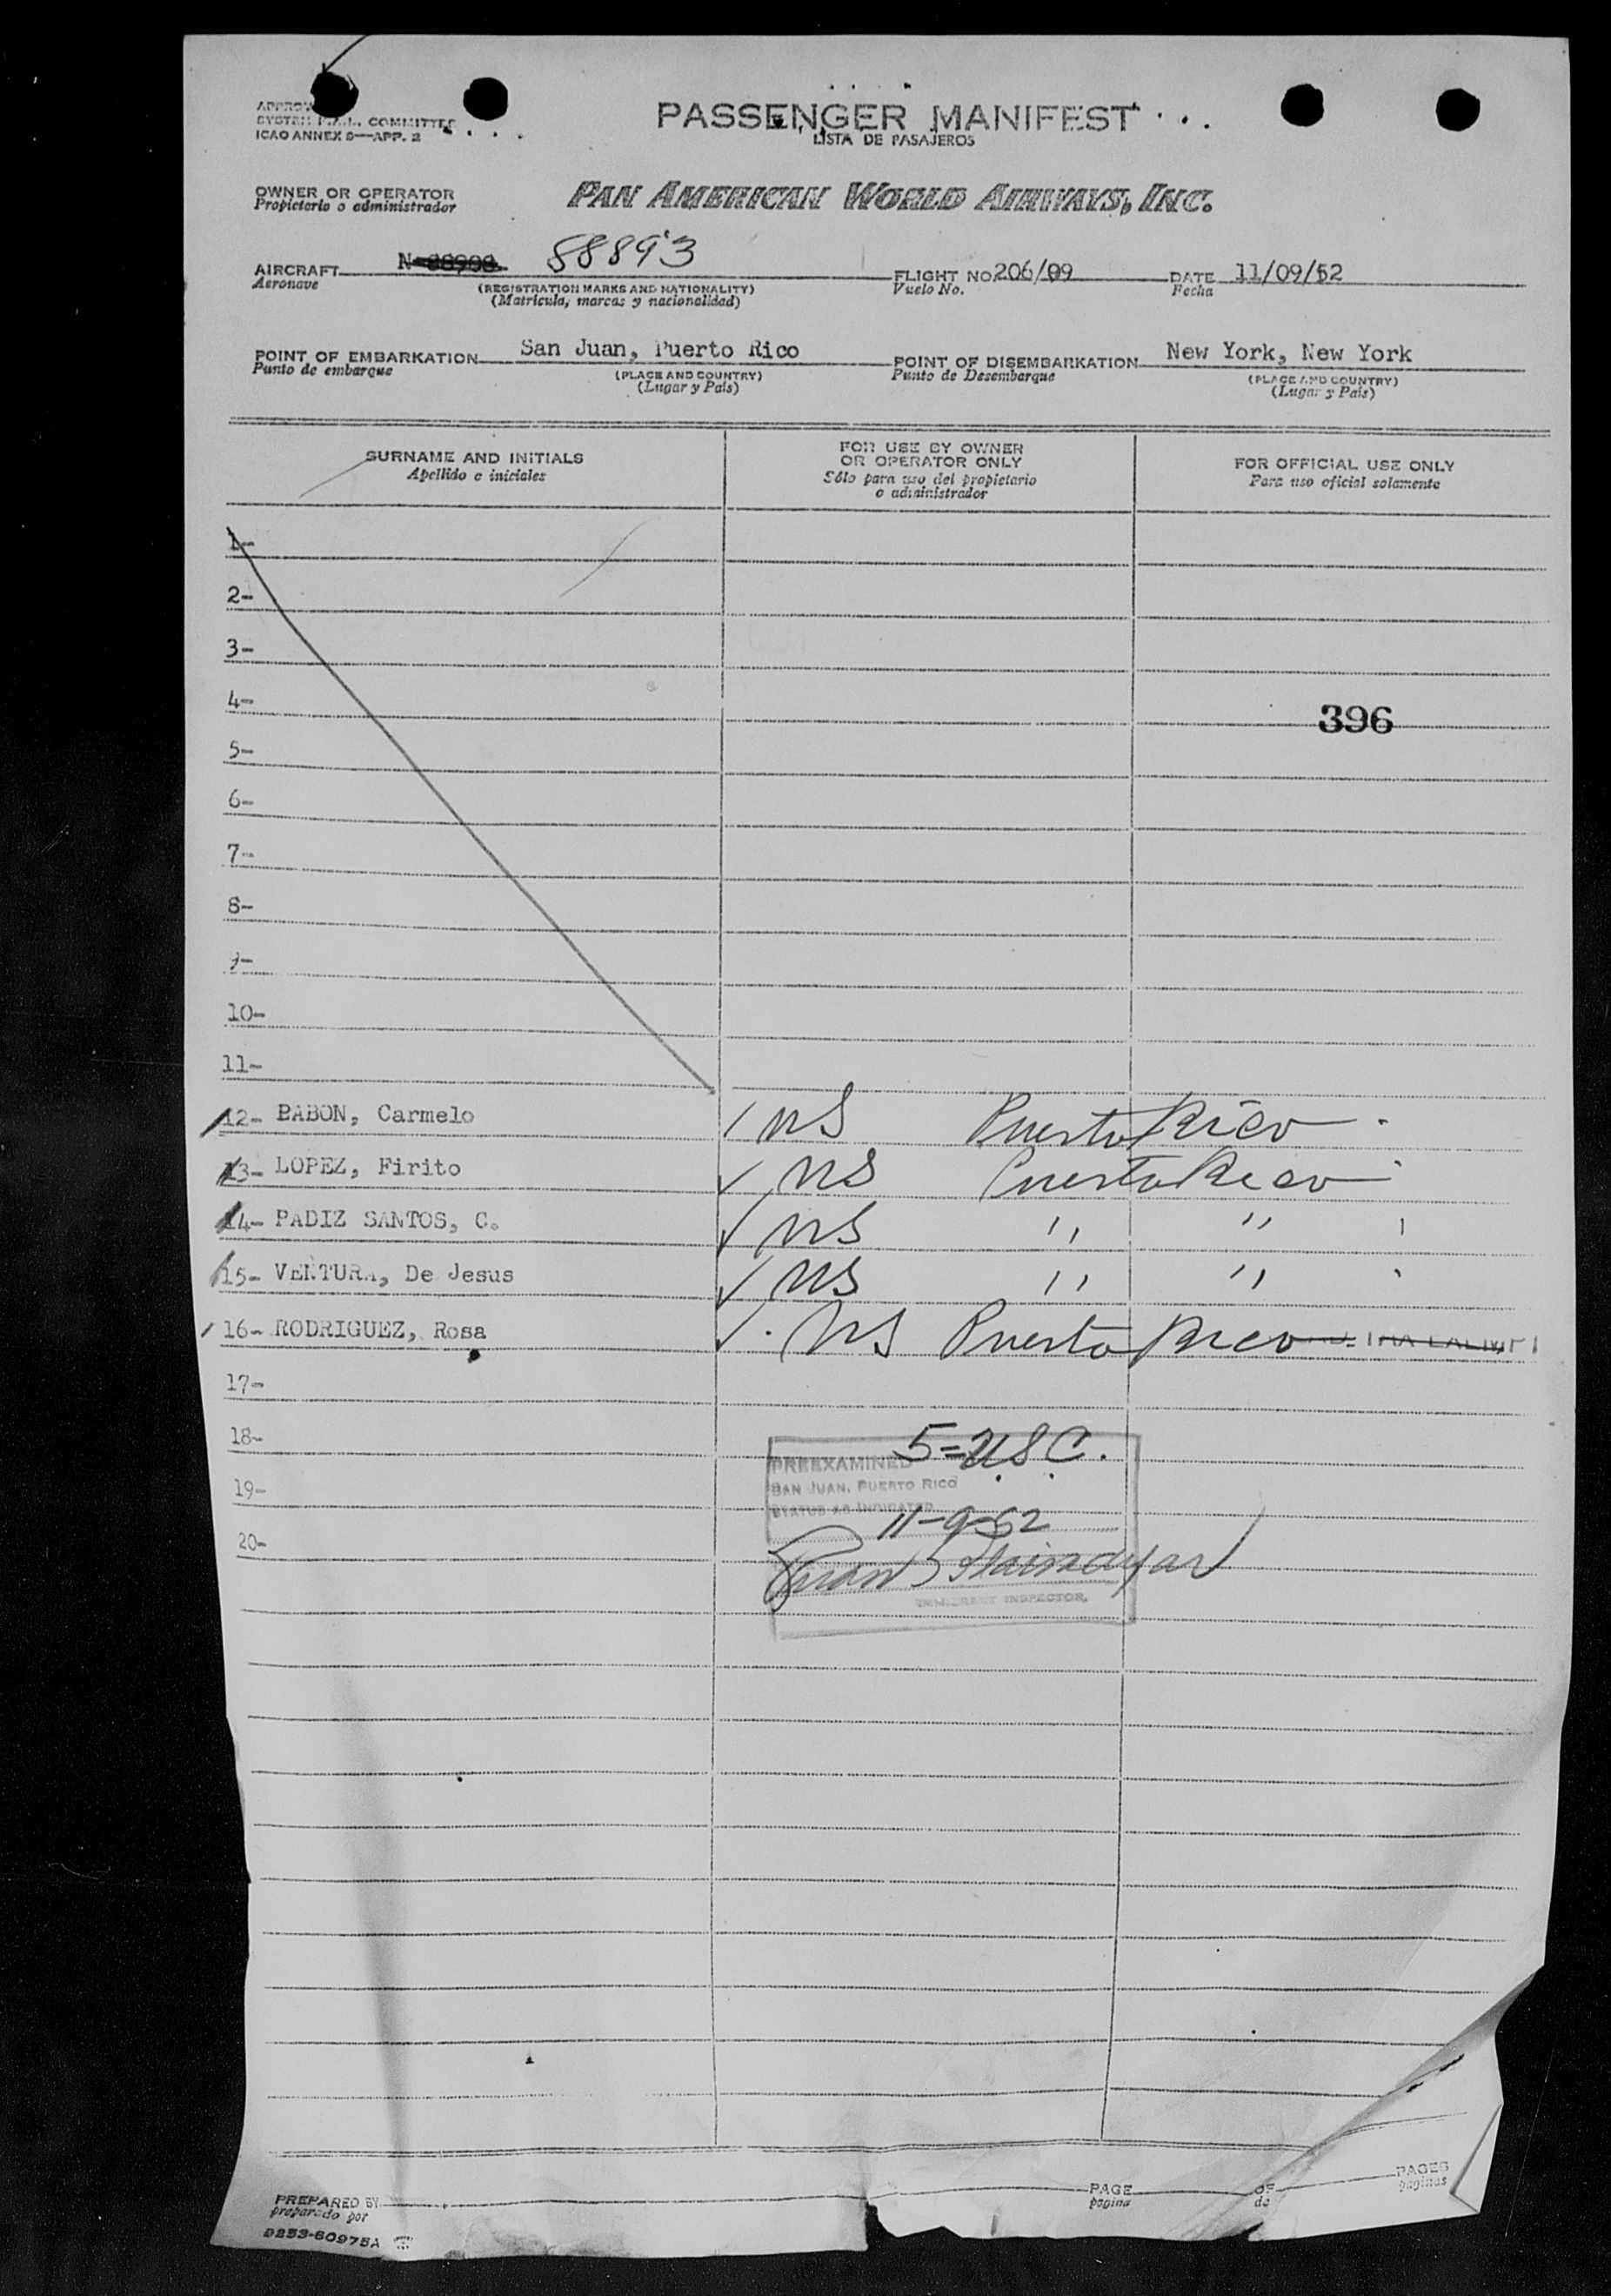 PASSENGER MANIFEST
LISTA DE PASAJEROS
SYSTEM COMMITTEE
ICAO ANNEX 9—APP. 2
OWNER OR OPERATOR
Propietario o administrador
PAN AMERICAN WORLD AIRWAYS, INC.
AIRCRAFT N-88908 88893 FLIGHT NO. 206/09 DATE 11/09/52
Aeronave (REGISTRATION MARKS AND NATIONALITY) Vuelo No. Fecha
(Matrícula, marcas y nacionalidad)
POINT OF EMBARKATION San Juan, Puerto Rico POINT OF DISEMBARKATION New York, New York
Punto de embarque (PLACE AND COUNTRY) Punto de Desembarque (PLACE AND COUNTRY)
(Lugar y País) (Lugar y País)
SURNAME AND INITIALS
Apellido e iniciales
FOR USE BY OWNER
OR OPERATOR ONLY
Sólo para uso del propietario
o administrador
FOR OFFICIAL USE ONLY
Para uso oficial solamente
1-
2-
3-
4- 396
5-
6-
7-
8-
9-
10-
11-
12- BABON, Carmelo ns Puerto Rico
13- LOPEZ, Firito ns Puerto Rico
14- PADIZ SANTOS, C. ns " "
15- VENTURA, De Jesus ns " "
16- RODRIGUEZ, Rosa ns Puerto Rico
17-
18- 5=U.S.C.
PREEXAMINED
SAN JUAN, PUERTO RICO
19-
STATUS AS INDICATED
11-9-52
20-
Juan
IMMIGRANT INSPECTOR.
PREPARED BY PAGE OF PAGES
preparado por pagina de paginas
9253-60975A